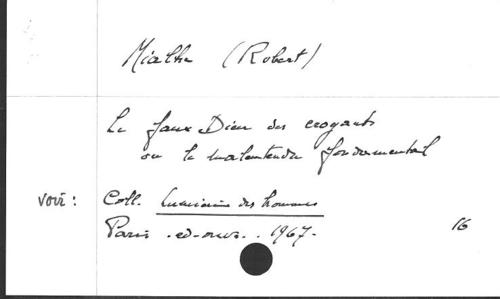 Mialhe (Robert)
Le faux Dieu des croyants
ou le malentendu fondamental
voir : Coll. Lumière des hommes
Paris .. 1967. 16